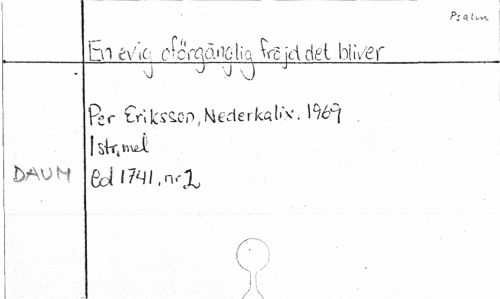 Psalm
En evig oförgänglig fröjd det bliver
Per Eriksson, Nederkalix. 1969
1 str, mel
DAUM Ed 1741, nr 2